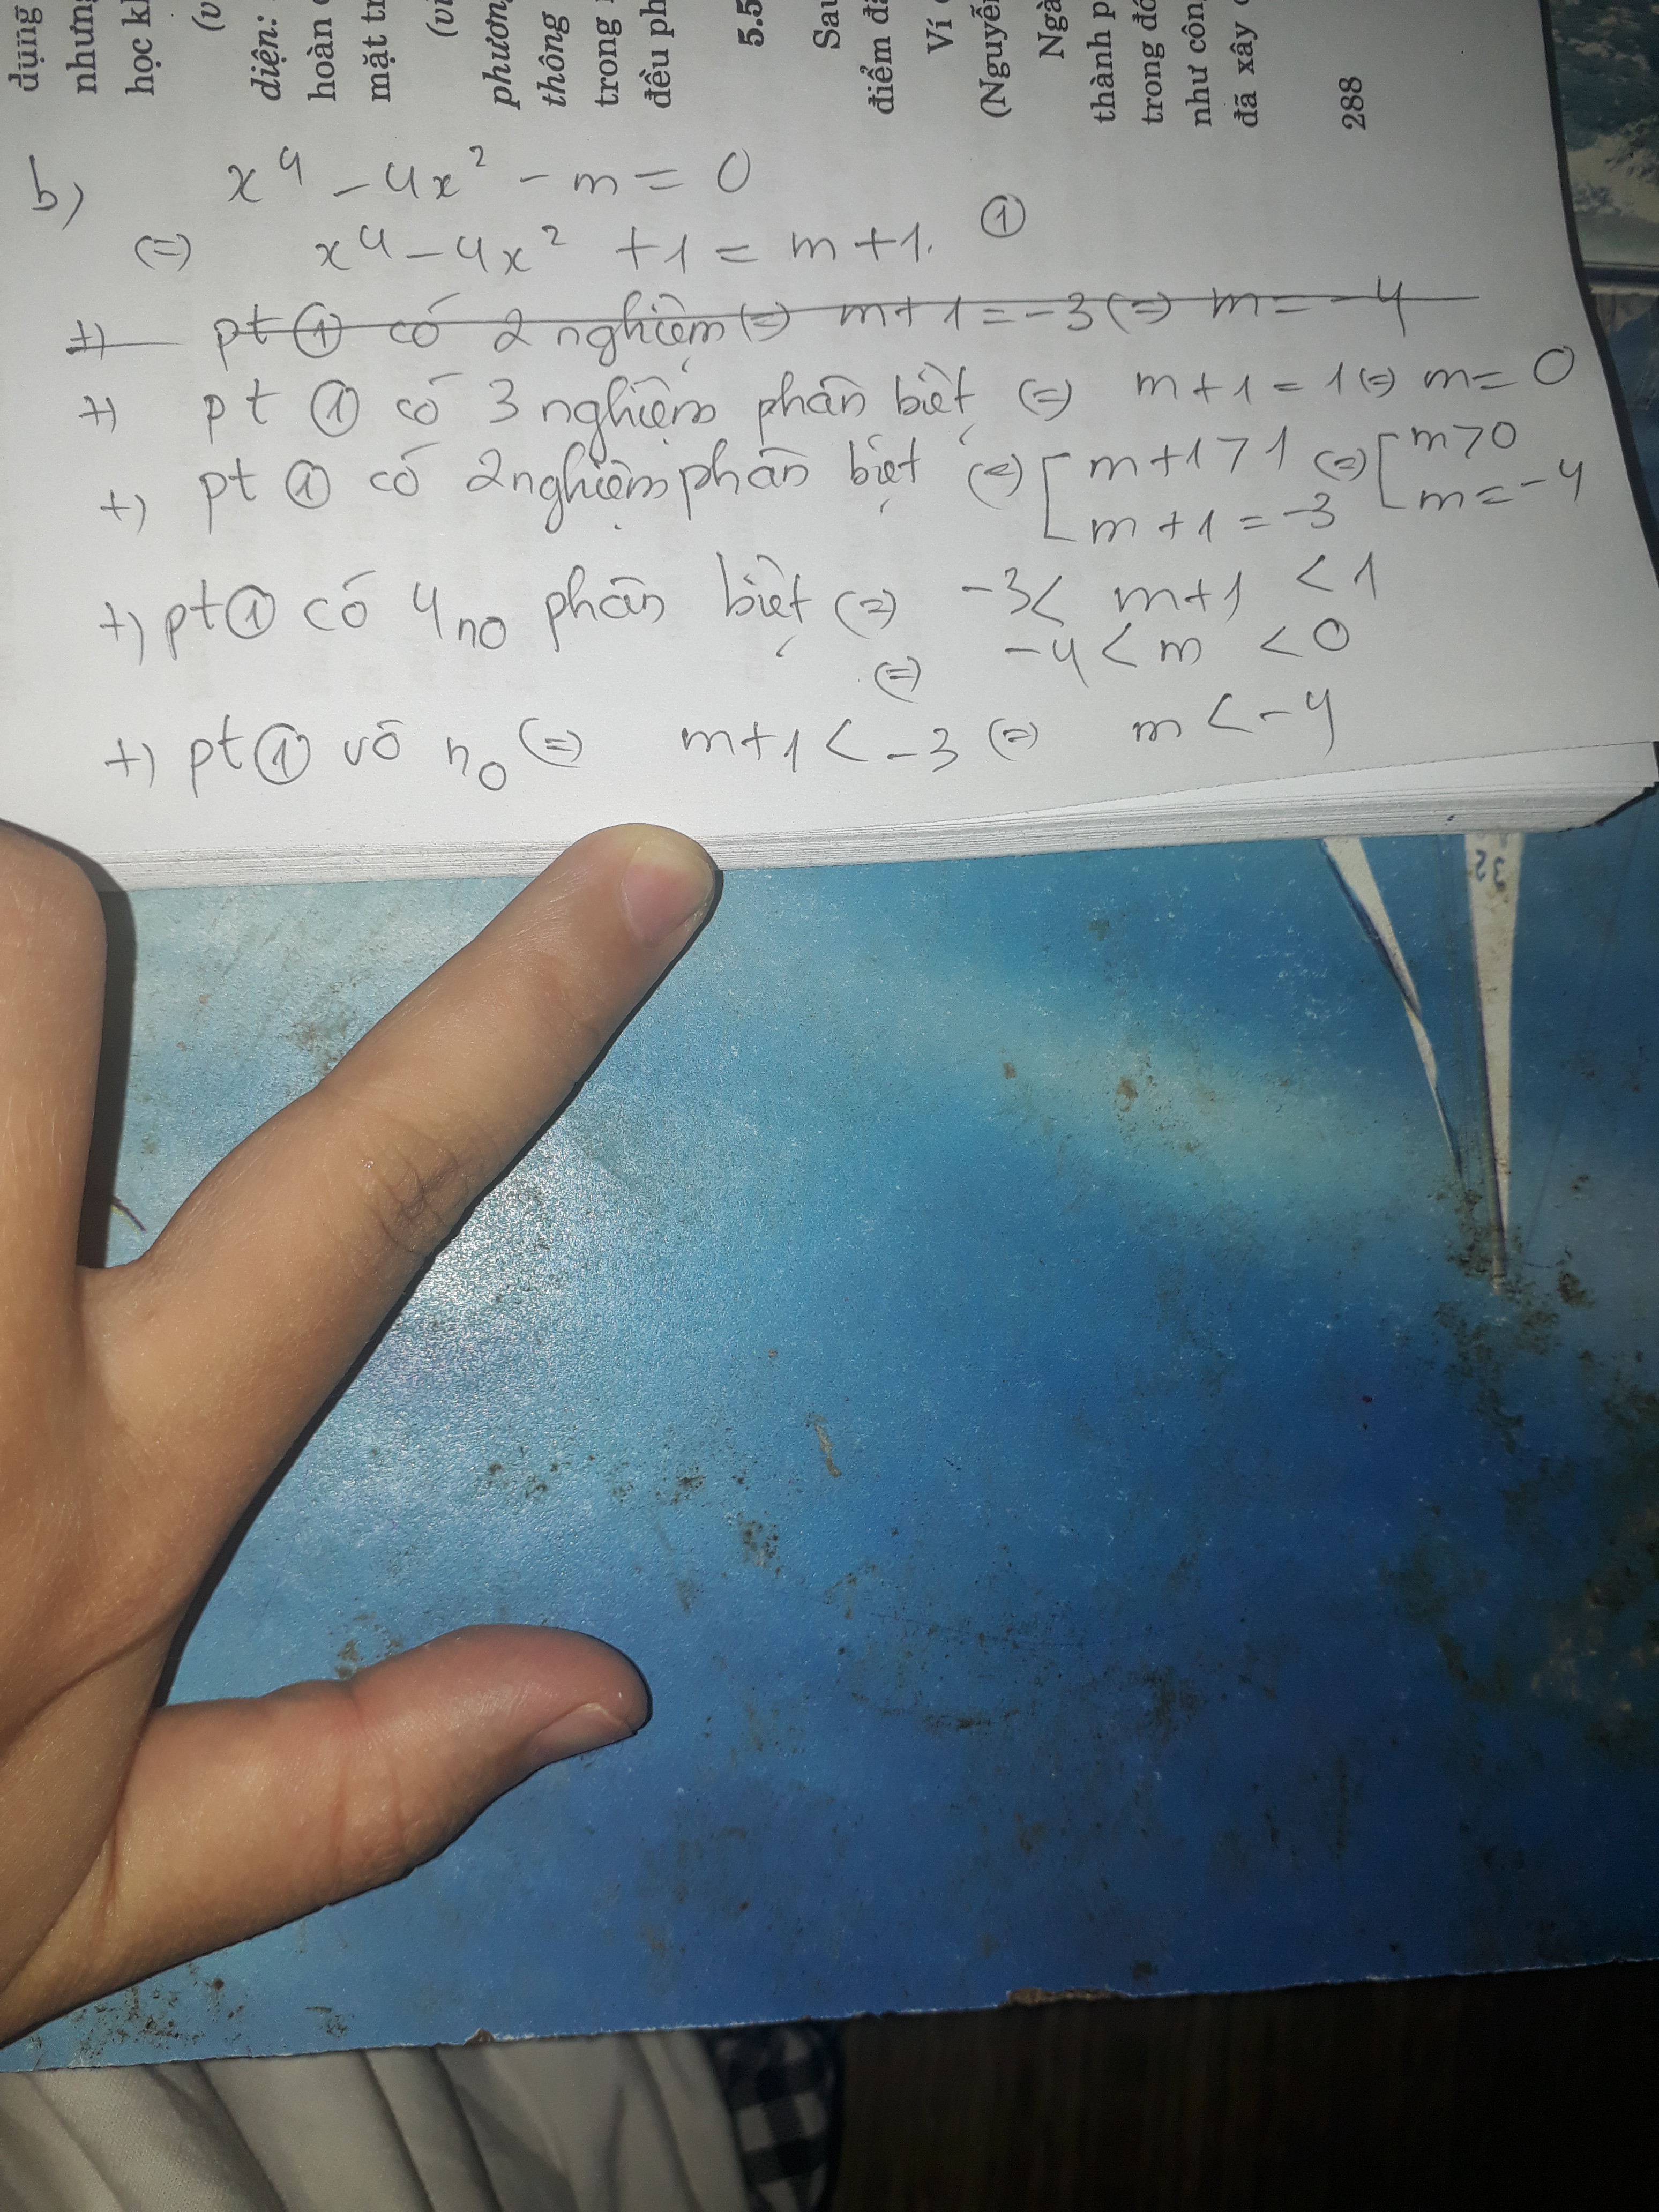 dụng
nhưng
học kh
(v
diện:
hoàn c
mặt tr
(vi
phương
thông
trong
đều ph
5.5
Sau
điểm đã
Ví
(Nguyễn
Ngà
thành p
trong đó
như công
đã xây
288
b) x⁴ - 4x² - m = 0
(=) x⁴ - 4x² + 1 = m + 1. ①
+) pt ① có 2 nghiệm (=) m + 1 = -3 (=) m = -4
+) pt ① có 3 nghiệm phân biệt (=) m + 1 = 1 (=) m = 0
+) pt ① có 2 nghiệm phân biệt (=) [ m + 1 > 1 (=) [ m > 0
m + 1 = -3 m = -4
+) pt ① có 4 no phân biệt (=) -3 < m + 1 < 1
(=) -4 < m < 0
+) pt ① vô no (=) m + 1 < -3 (=) m < -4
32